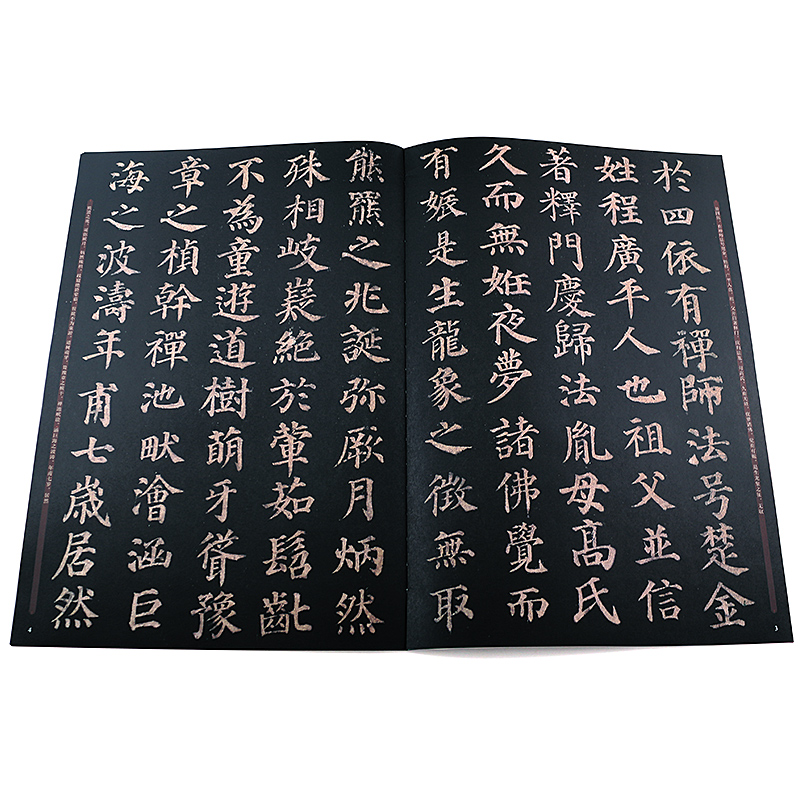 於四依有禪師法号楚金
姓程廣平人也祖父並信
著釋門慶歸法胤母髙氏
久而無姙夜夢諸佛覺而
有娠是生龍象之徵無取
3
熊羆之兆誕弥厥月炳然
殊相岐嶷絶於葷茹髫齔
不為童遊道樹萌牙聳豫
章之楨幹禪池畎澮涵巨
海之波濤年甫七歲居然
4